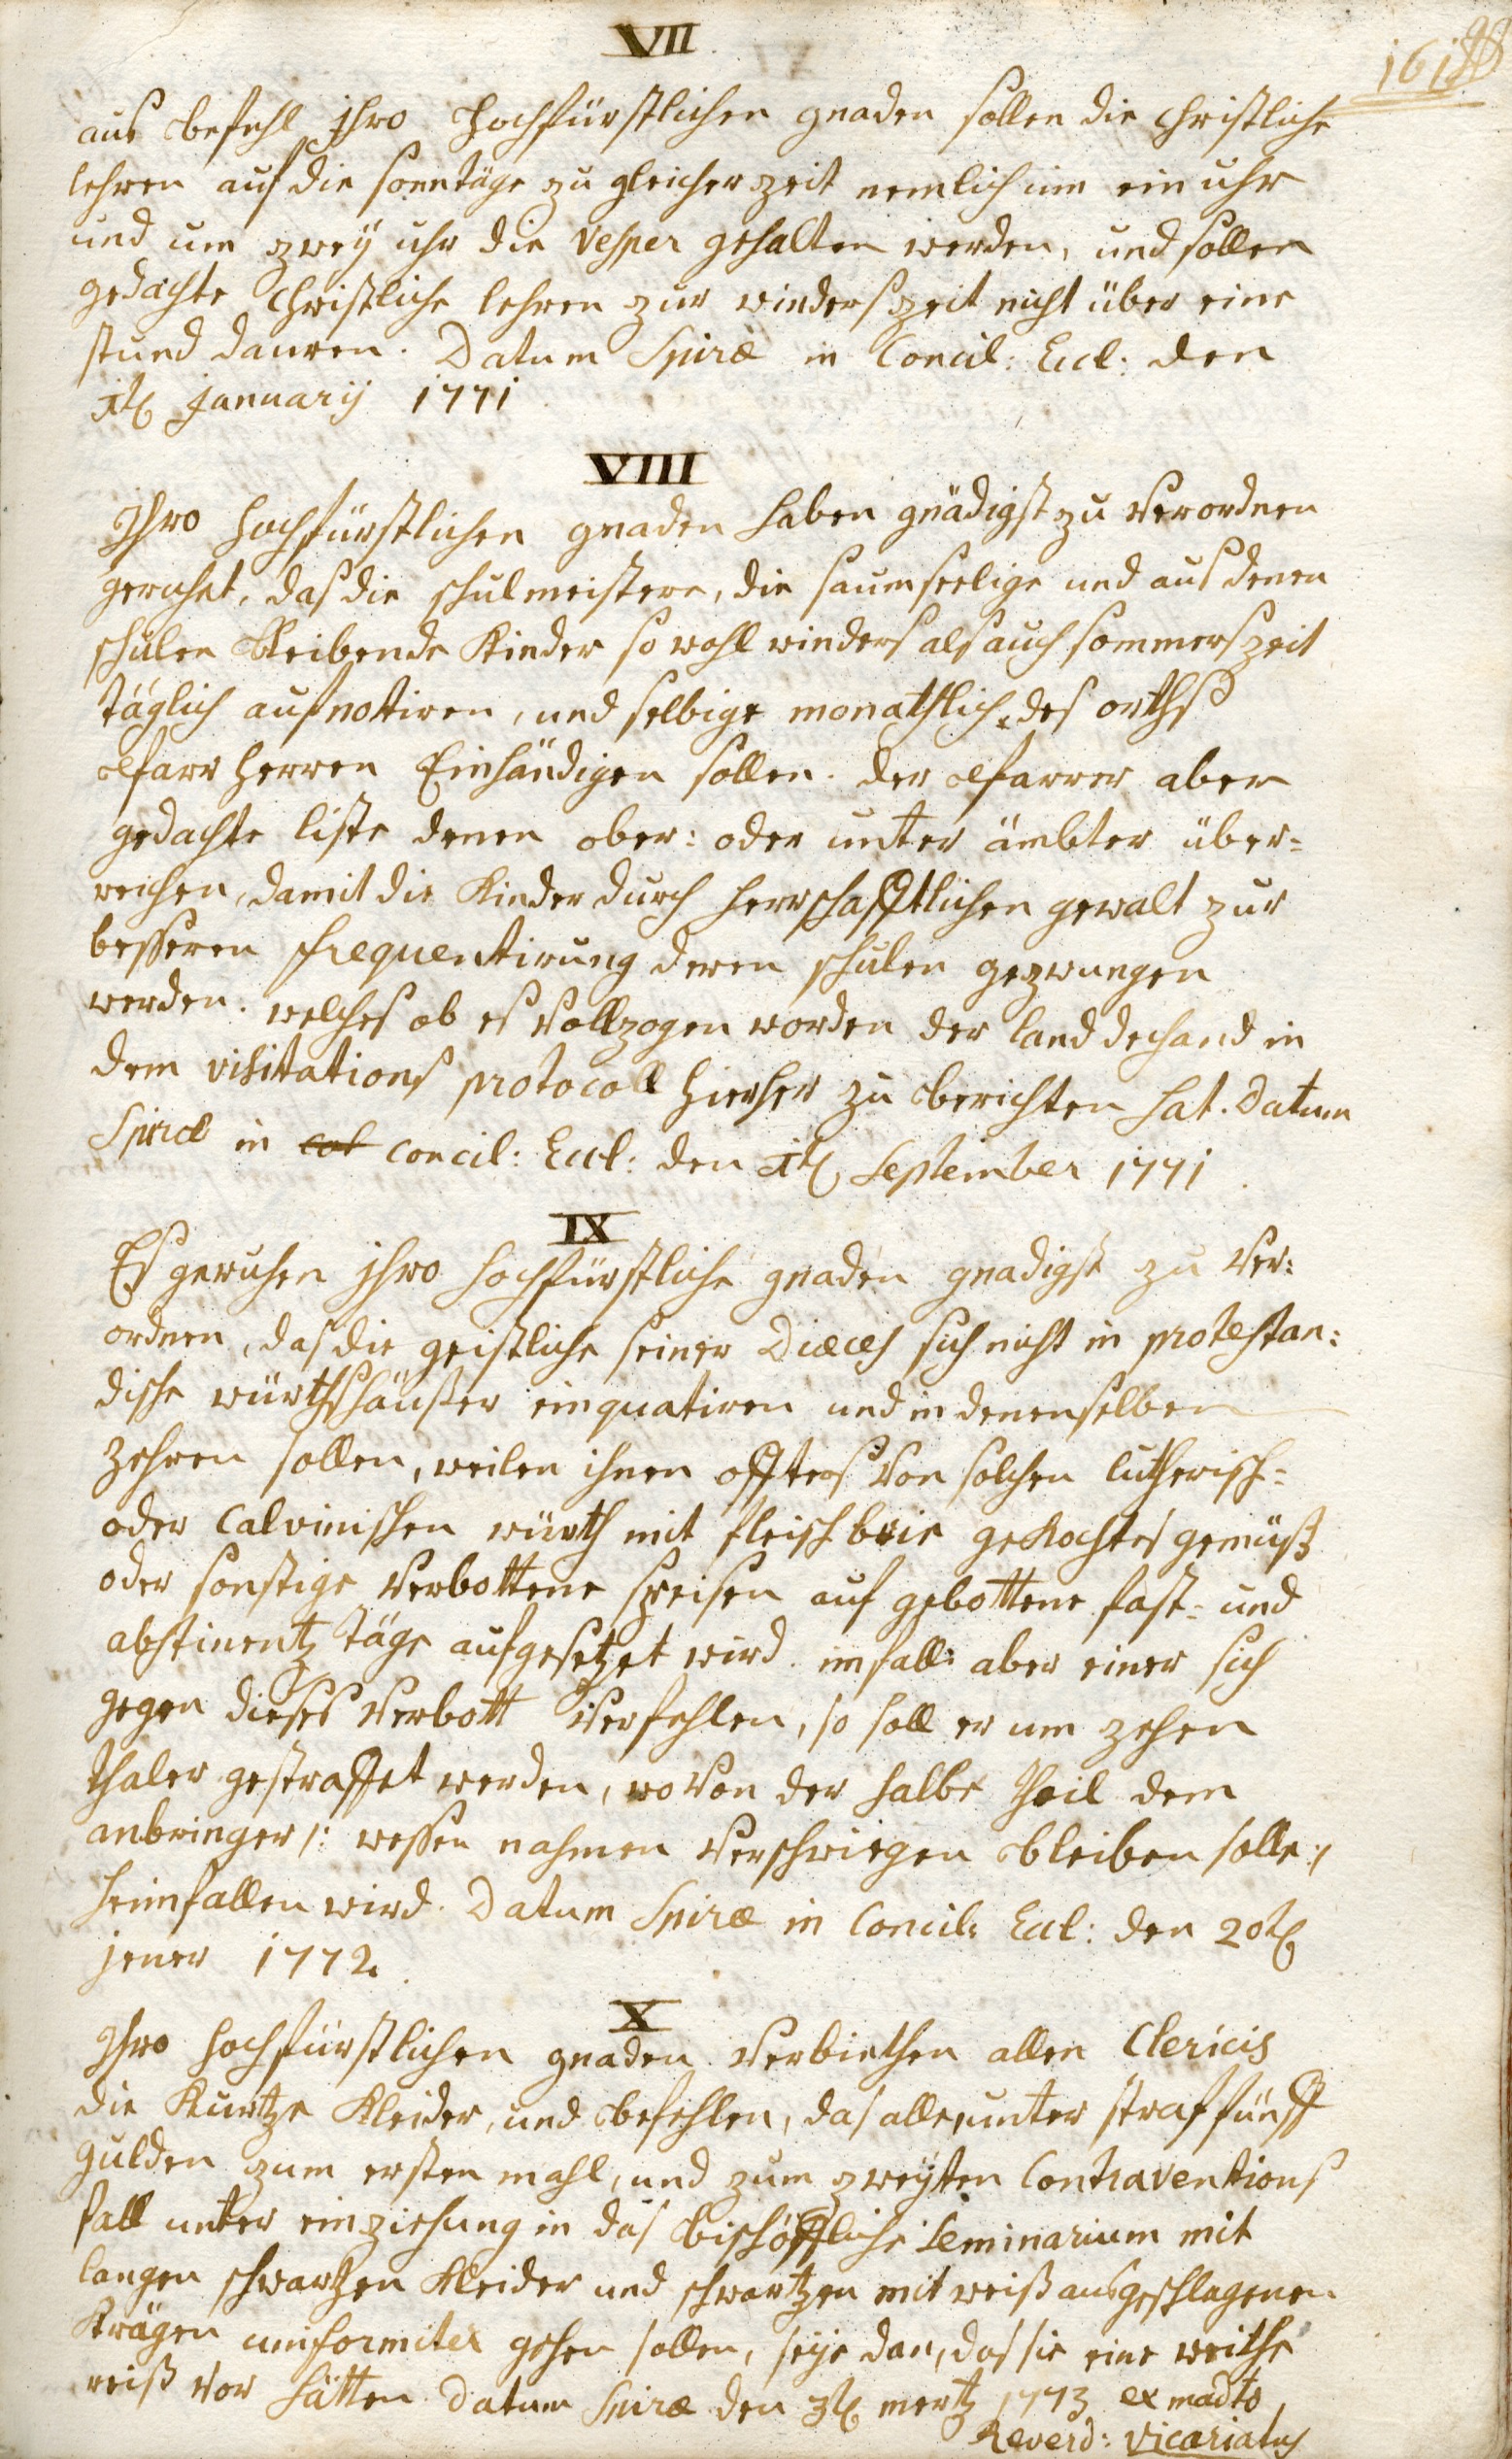 VII
aus befehl ihro hochfürstlichen gnaden sollen die christliche
lehren auf die sonntäge zu gleicher zeit nemlich um ein uhr
und um zwey uhr die vesper gehalten werden, und sollen
gedachte christliche lehren zur winderszeit nicht über eine
stund dauren. Datum Spiræ in Concil: Eccl: den
januarij 1771
VIII
Ihro hochfürstlichen gnaden haben gnädigst zu verordnen
geruhet, das die schulmeistere, die saumseelige und aus denen
schulen bleibende kinder so wohl winders als auch sommerszeit
täglich aufnotiren, und selbige monathlich des orths
pfarr herren Einhändigen sollen. der pfarrer aber
gedachte liste denen ober: oder unter ämbter über-
reichen, damit die kinder durch herrschafftlichen gewalt zur
besseren frequentirung deren schulen gezwungen
werden. welches ob es vollzogen worden der land dechand in
dem visitations protocoll hierher zu berichten hat. Datum
Spiræ in concil: Eccl: den September 1771.
IX
Es geruhen ihro hochfürstliche gnaden gnadigst zu ver:
ordnen, das die geistliche seiner Diœces sich nicht in protestan:
dische würthshäußer einquatiren und in denenselben
zehren sollen, weilen ihnen offters von solchen lutherisch-
oder Calvinischen würth mit fleischbrie gekochtes gemüß
oder sonstige verbottene speisen auf gebottene fast- und
abstinentz täge aufgesetzet wird. im fall aber einer sich
gegen dieses verbott verfehlen, so soll er um zehen
thaler gestraffet werden, wovon der halbe theil dem
anbringer /: wessen nahmen verschwiegen bleiben solle :/
heimfallen wird. Datum Spiræ in Concil: Eccl: den 20t
jener 1772.
X
Ihro hochfürstlichen gnaden verbiethen allen Clericis
die kurtze kleider, und befehlen, das alle, unter straf fünff
gulden zum ersten mahl, und zum zweyten Contraventions
fall unter einziehung in das bischöffliche Seminarium mit
langen schwartzen kleider und schwartzen mit weiß ausgeschlagenen
krägen uniformiter gehen sollen, seye dan, das sie eine weithe
reiß vor hätten. Datum Spiræ den 3t mertz 1773 ex madto
Reverd: vicariatus